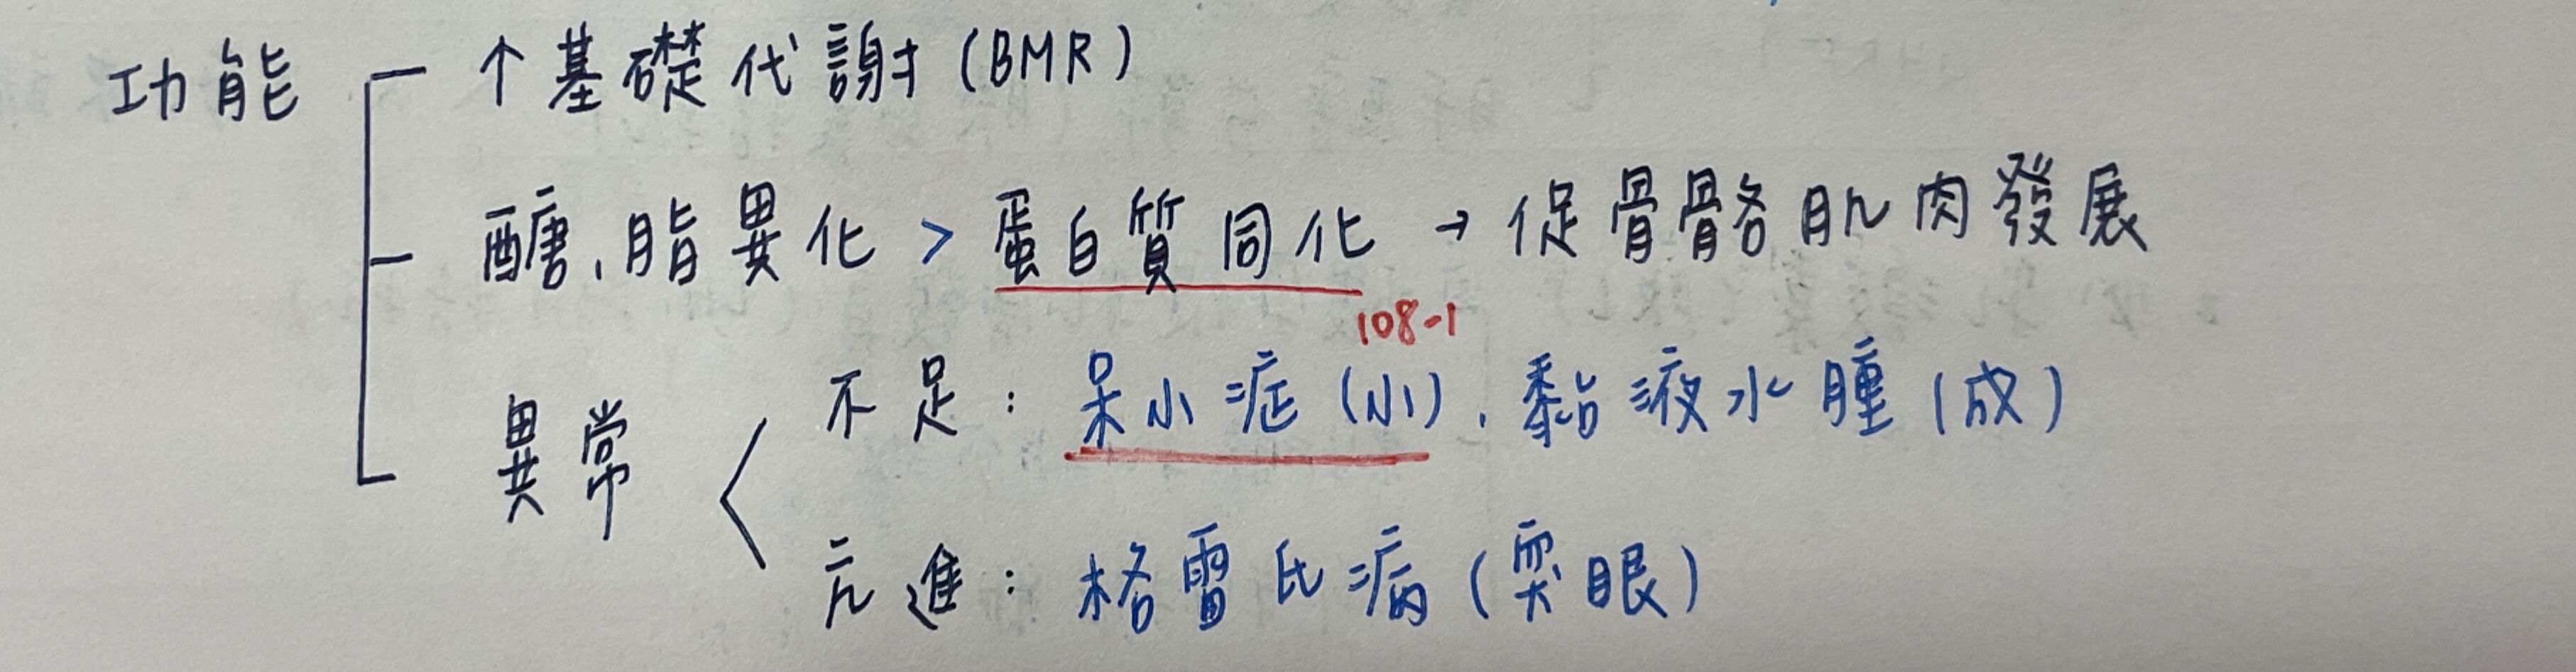 功能
↑基礎代謝(BMR)
醣、脂異化 > 蛋白質同化 → 促骨骼肌肉發展
108-1
異常
不足:呆小症(小)、黏液水腫(成)
亢進:格雷氏病(突眼)